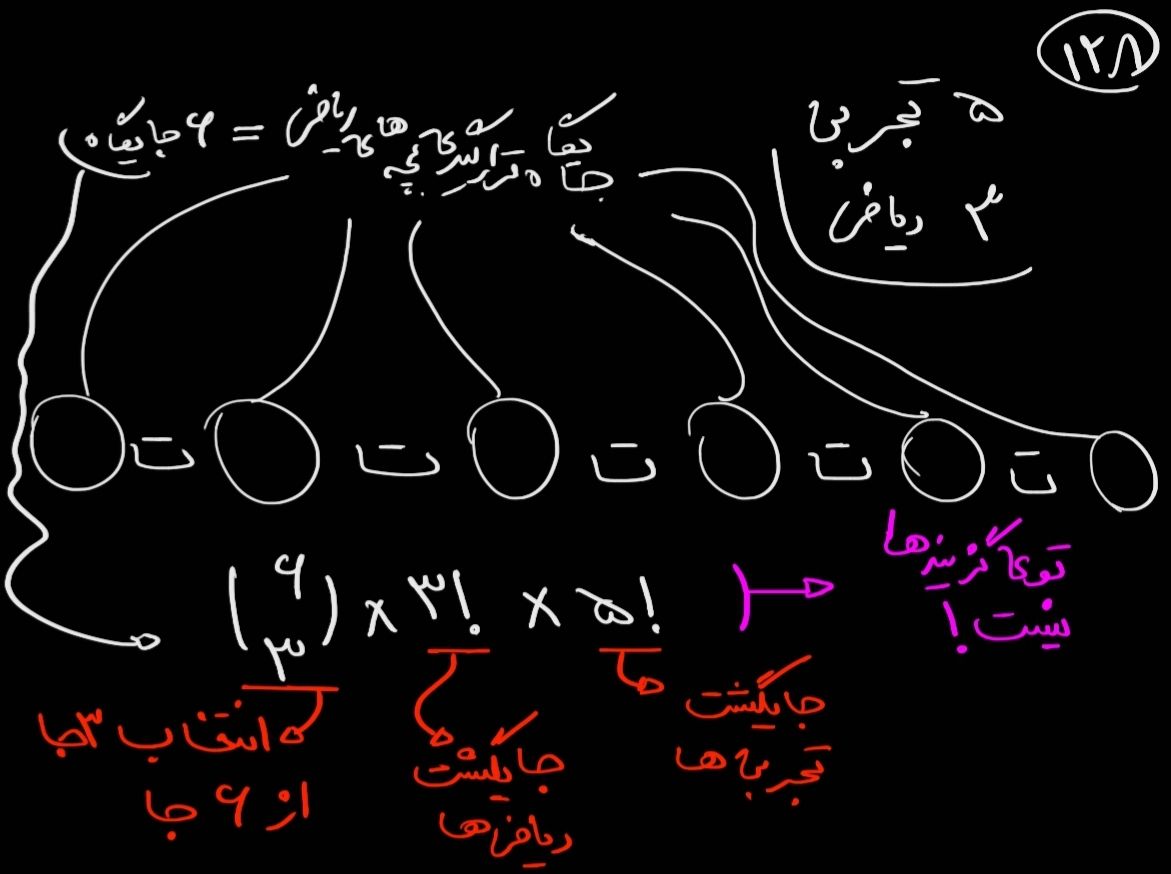 ۱۲۸
۵ تجربی
۳ ریاضی
جایگاه قرارگیری بچه های ریاضی = ۶ جایگاه
ت ت ت ت ت
(۶ ۳) × ۳! × ۵!
توی گزینه‌ها
نیست!
انتخاب ۳ جا
از ۶ جا
جایگشت
ریاضی‌ها
جایگشت
تجربی‌ها